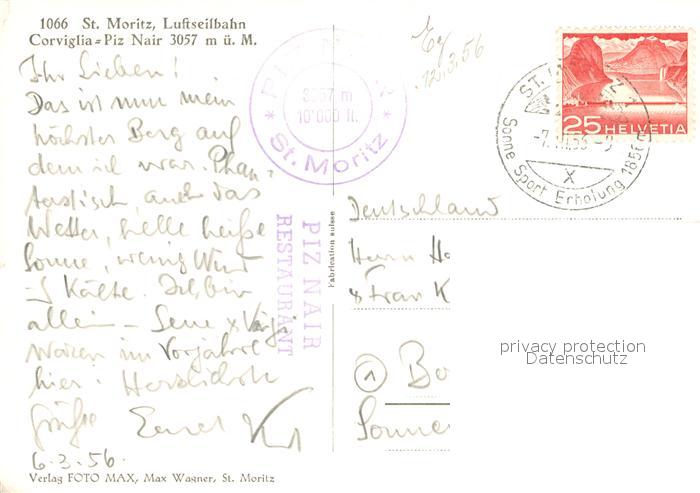 1066 St. Moritz, Luftseilbahn
Corviglia=Piz Nair 3057 m ü. M.
Ihr Lieben!
Das ist nun mein
höchster Berg auf
dem ich war. Phan-
tastisch, auch das
Wetter, helle heiße
Sonne, wenig Wind
Kälte. Ich bin
allein –
waren im Vorjahre
hier. Herzlichste
Grüße
6.3.56.
Verlag FOTO MAX, Max Wagner, St. Moritz
PIZ NAIR
3057 m
10'000 ft.
St. Moritz
PIZ NAIR
RESTAURANT
Fabrication suisse
12.3.56
25 HELVETIA
ST. MORITZ
Sonne Sport Erholung 1856 m
X
Deutschland
Herrn
& Frau K
privacy protection
Datenschutz